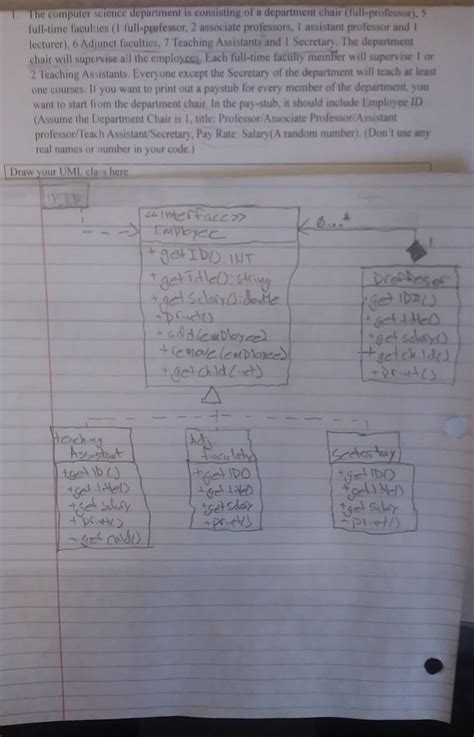 1. The computer science department is consisting of a department chair (full-professor), 5
full-time faculties (1 full-professor, 2 associate professors, 1 assistant professor and 1
lecturer), 6 Adjunct faculties, 7 Teaching Assistants and 1 Secretary. The department
chair will supervise all the employees. Each full-time faculty member will supervise 1 or
2 Teaching Assistants. Everyone except the Secretary of the department will teach at least
one courses. If you want to print out a paystub for every member of the department, you
want to start from the department chair. In the pay-stub, it should include Employee ID
(Assume the Department Chair is 1, title: Professor/Associate Professor/Assistant
professor/Teach Assistant/Secretary, Pay Rate: Salary(A random number). (Don't use any
real names or number in your code.)
Draw your UML class here
<<interface>>
Employee
0...*
1
+ getID(): INT
+ getTitle(): string
+ getSalary(): double
+ print()
+ add(employee)
+ remove(employee)
+ getChild(int)
Proffesor
+ getID()
+ getTitle()
+ getSalary()
+ getChild()
+ print()
teaching
Assistant
+ getID()
+ getTitle()
+ getSalary
+ print()
- getChild()
Adj
faculty
+ getID()
+ getTitle()
+ getSalary
+ print()
Secretary
+ getID()
+ getTitle()
+ getSalary
- print()